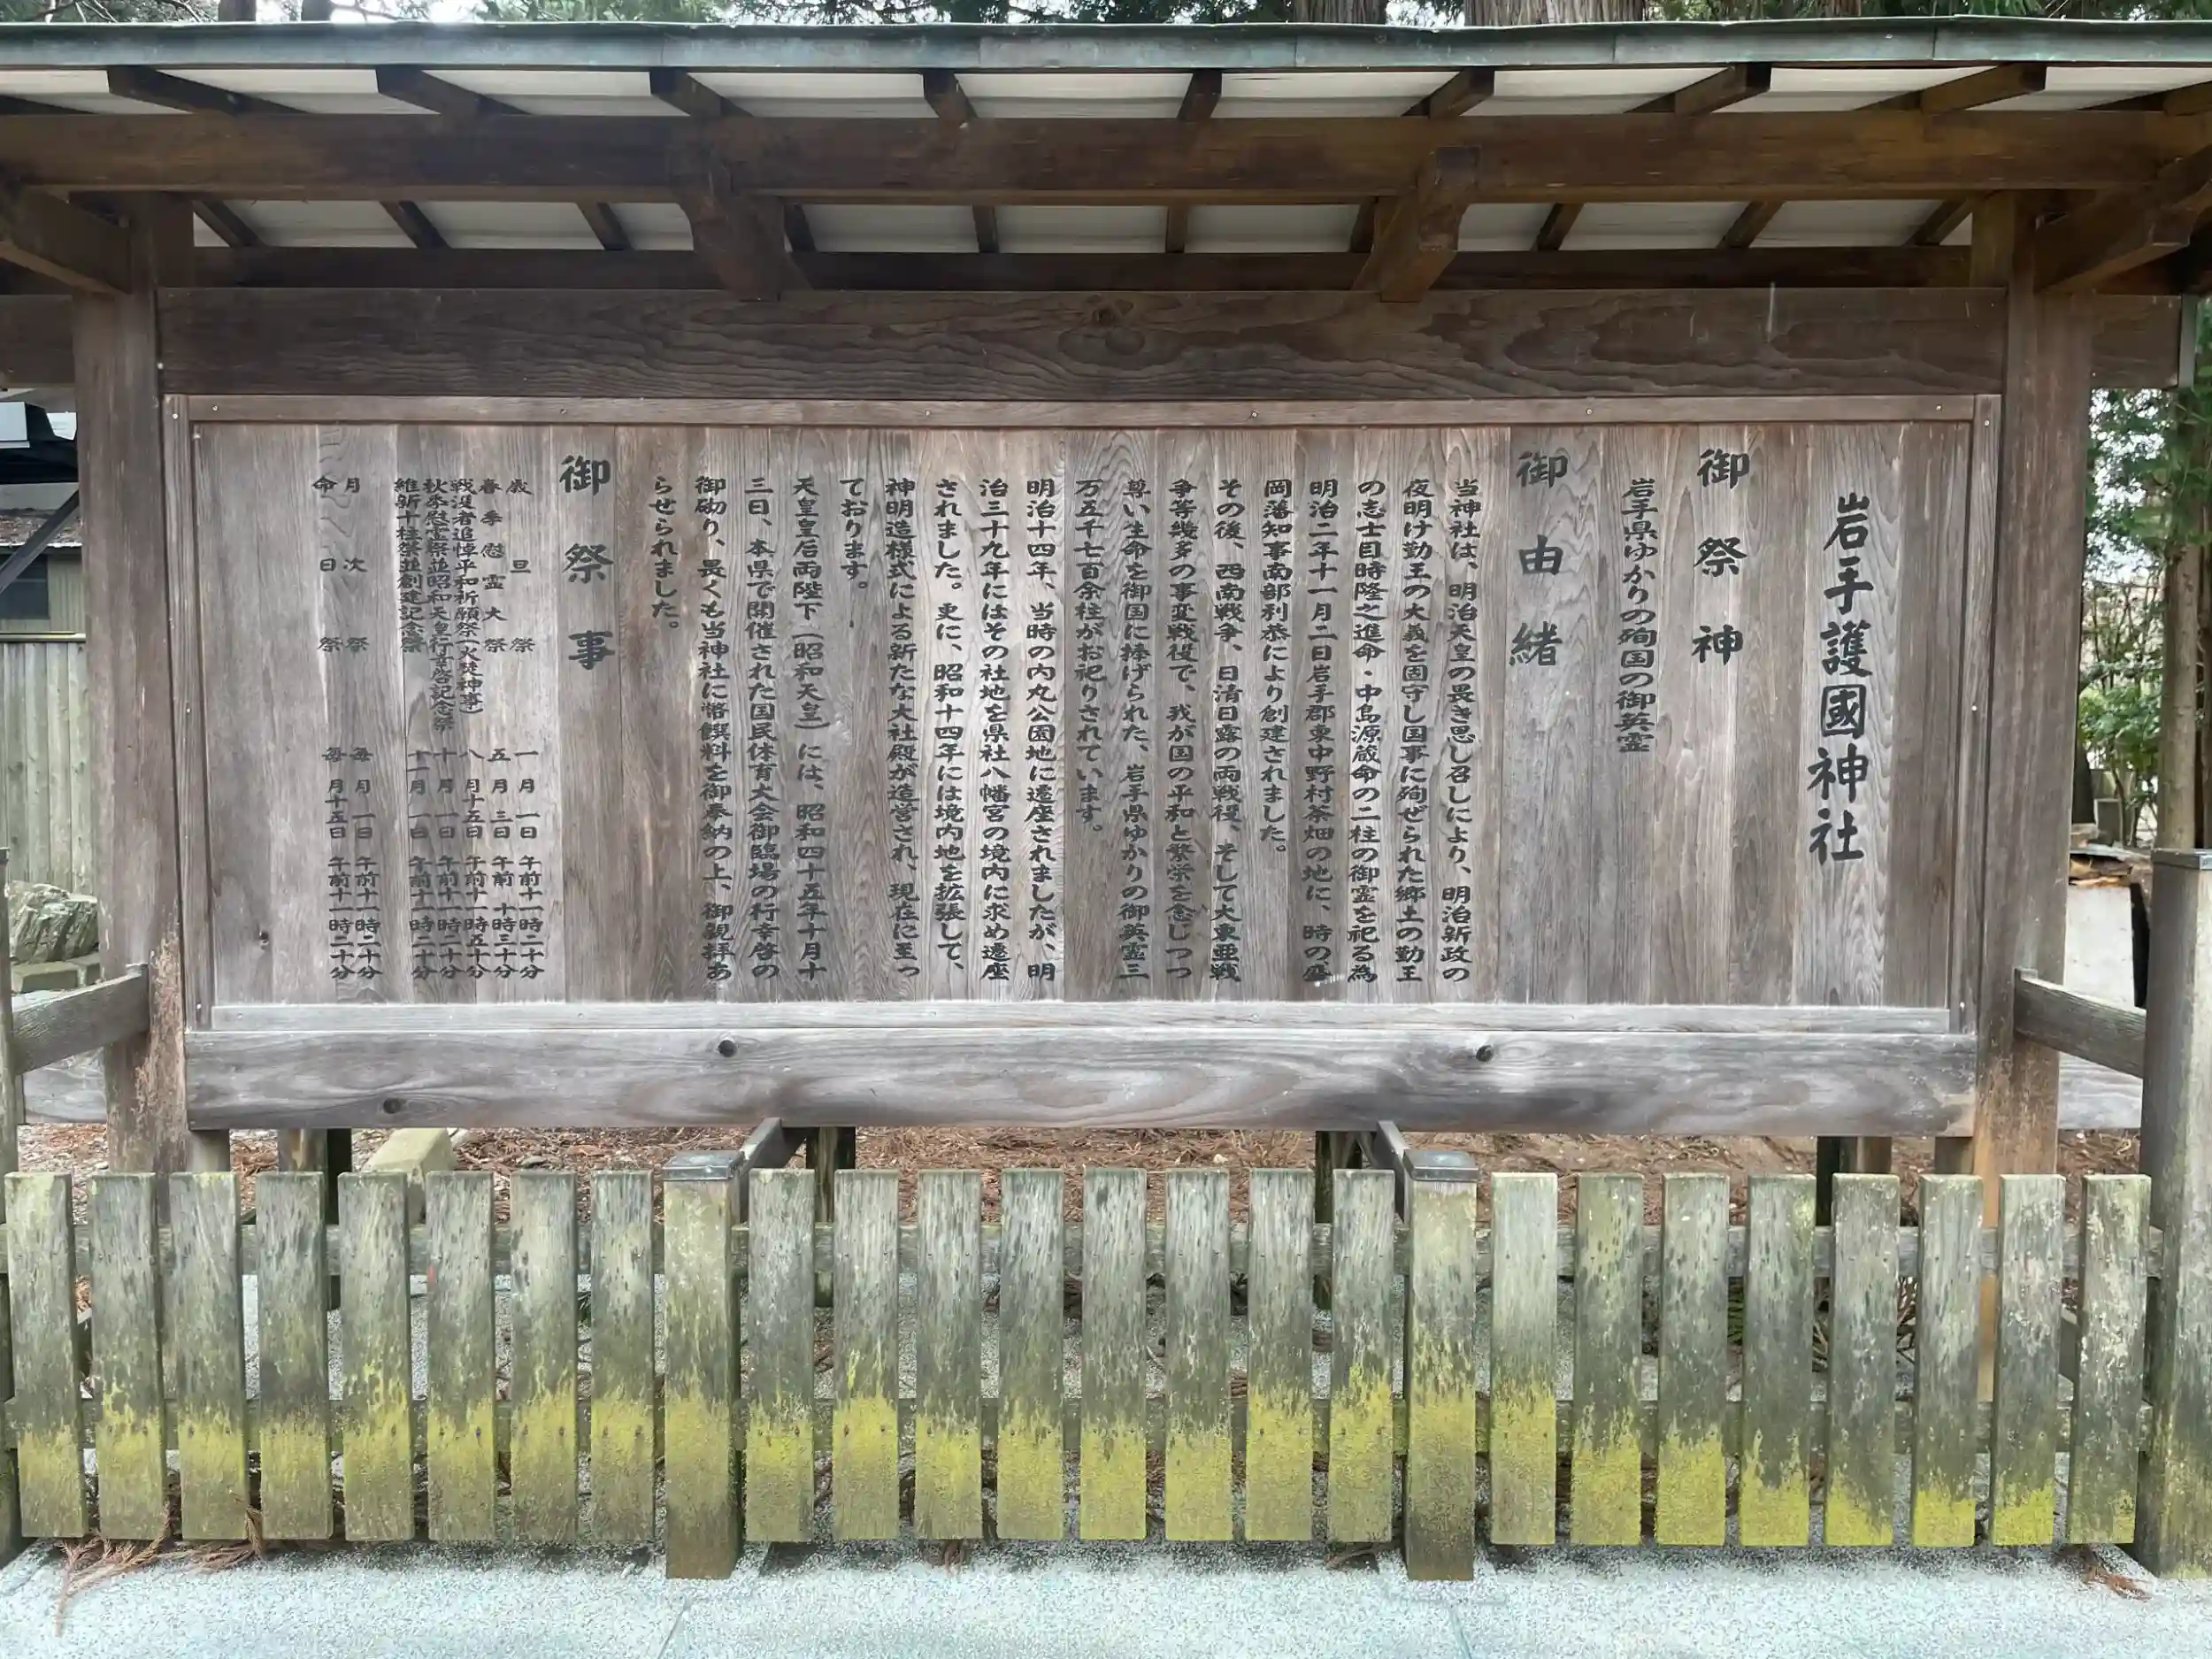 岩手護國神社
御祭神
岩手県ゆかりの殉国の御英霊
御由緒
当神社は、明治天皇の畏き思し召しにより、明治新政の
夜明け勤王の大義を固守し国事に殉ぜられた郷土の勤王
の志士目時隆之進命・中島源蔵命の二柱の御霊を祀る為
明治二年十一月二日岩手郡東中野村茶畑の地に、時の盛
岡藩知事南部利恭により創建されました。
その後、西南戦争、日清日露の両戦役、そして大東亜戦
争等幾多の事変戦役で、我が国の平和と繁栄を念じつつ
尊い生命を御国に捧げられた、岩手県ゆかりの御英霊三
万五千七百余柱がお祀りされています。
明治十四年、当時の内丸公園地に遷座されましたが、明
治三十九年にはその社地を県社八幡宮の境内に求め遷座
されました。更に、昭和十四年には境内地を拡張して、
神明造様式による新たな大社殿が造営され、現在に至っ
ております。
天皇皇后両陛下（昭和天皇）には、昭和四十五年十月十
三日、本県で開催された国民体育大会御臨場の行幸啓の
御砌り、畏くも当神社に幣饌料を御奉納の上、御親拝あ
らせられました。
御祭事
歳旦祭 一月一日 午前十一時二十分
春季慰霊大祭 五月三日 午前十時三十分
戦没者追悼平和祈願祭（火焚神事） 八月十五日 午前十一時五十分
秋季慰霊祭並昭和天皇行幸啓記念祭 十月一日 午前十一時二十分
維新十柱祭並創建記念祭 十一月一日 午前十一時二十分
月次祭 毎月一日 午前十一時二十分
命日祭 毎月十五日 午前十一時二十分